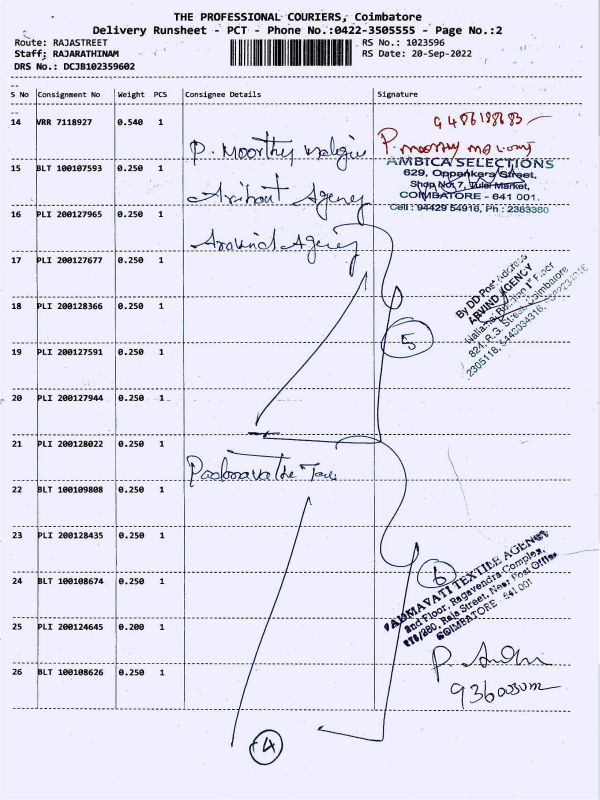 THE PROFESSIONAL COURIERS, Coimbatore
Delivery Runsheet - PCT - Phone No.:0422-3505555 - Page No.:2
Route: RAJASTREET
Staff: RAJARATHINAM
DRS No.: DCJB102359602
RS No.: 1023596
RS Date: 20-Sep-2022
S No Consignment No Weight PCS Consignee Details Signature
14 VRR 7118927 0.540 1
P. Moorthy
P. moorthy
15 BLT 100107593 0.250 1
Arihant Agency
AMBICA SELECTIONS
629, Oppankara Street,
Shop No: 7, Tulsi Market,
COIMBATORE - 641 001.
Cell : 94429 54916, Ph : 2383380
16 PLI 200127965 0.250 1
Aravind Agency
17 PLI 200127677 0.250 1
By DD Post Address
ARVIND AGENCY
18 PLI 200128366 0.250 1
5
19 PLI 200127591 0.250 1
20 PLI 200127944 0.250 1
21 PLI 200128022 0.250 1
22 BLT 100109808 0.250 1
23 PLI 200128435 0.250 1
24 BLT 100108674 0.250 1
6
PADMAVATI TEXTILE AGENCY
2nd Floor, Ragavendra Complex,
Raja Street, Near Post Office
COIMBATORE - 641 001
25 PLI 200124645 0.200 1
26 BLT 100108626 0.250 1
4